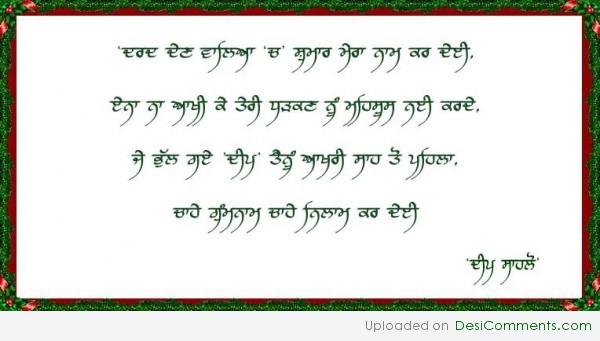 'ਦਰਦ ਦੇਣ ਵਾਲਿਆ 'ਚ' ਸ਼ੁਮਾਰ ਮੇਰਾ ਨਾਮ ਕਰ ਦੇਈ,
ਏਨਾ ਨਾ ਆਖੀ ਕੇ ਤੇਰੀ ਧੜਕਣ ਨੂੰ ਮਹਿਸੂਸ ਨਈ ਕਰਦੇ,
ਜੇ ਭੁੱਲ ਗਏ 'ਦੀਪ' ਤੈਨੂੰ ਆਖਰੀ ਸਾਹ ਤੋਂ ਪਹਿਲਾ,
ਚਾਹੇ ਗੁੰਮਨਾਮ ਚਾਹੇ ਨਿਲਾਮ ਕਰ ਦੇਈ
'ਦੀਪ ਸਾਹਲੋਂ'
Uploaded on DesiComments.com